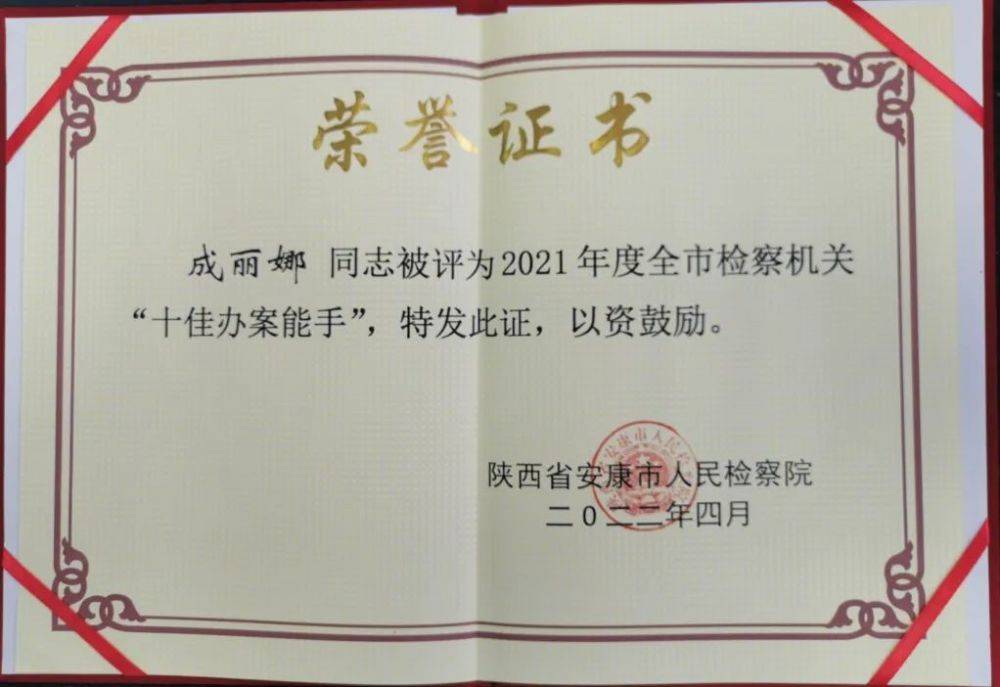 荣誉证书
成丽娜 同志被评为2021年度全市检察机关
“十佳办案能手”，特发此证，以资鼓励。
陕西省安康市人民检察院
二0二二年四月